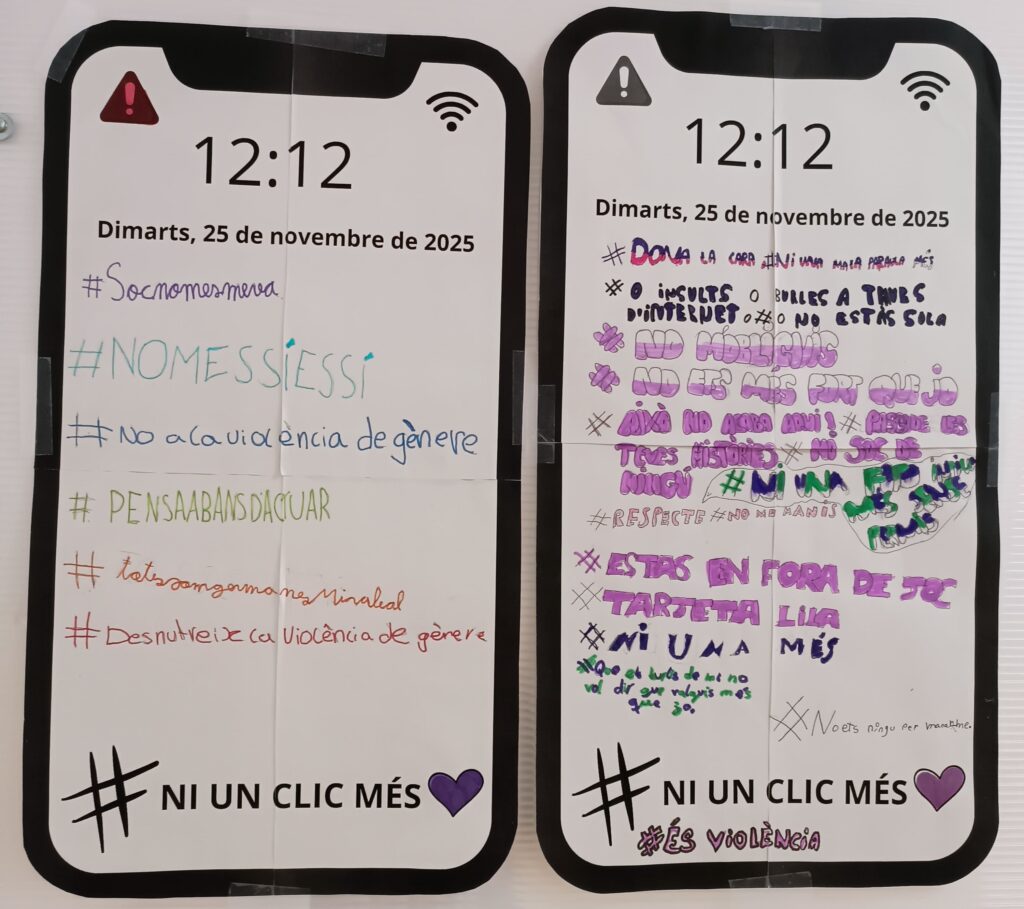 12:12
Dimarts, 25 de novembre de 2025
#Socnomesmeva
#NOMESSÍESSÍ
#No a la violència de gènere
#PENSAABANSD'ACTUAR
#totessomgermanesMirabal
#Desnutreix la violència de gènere
# NI UN CLIC MÉS
12:12
Dimarts, 25 de novembre de 2025
#DONA LA CARA #NI UNA MALA PARAULA MÉS
#0 INSULTS 0 BULLES A TRAVES
D'INTERNET #NO ESTÀS SOLA
#NO M'OBLIGUIS
#NO ETS MÉS FORT QUE JO
#AIXÒ NO ACABA AQUI! # LES
TEVES HISTÒRIES #NO SOC DE
NINGÚ #NI UNA FOTO
MÉS SENSE
PERMÍS
#RESPECTE #NO ME MANIS
#ESTAS EN FORA DE JOC
#TARJETA LILA
#NI UNA MÉS
#Que et burlis de mi no
vol dir que valguis més
que jo.
#No ets ningu per
# NI UN CLIC MÉS
#ÉS VIOLÈNCIA